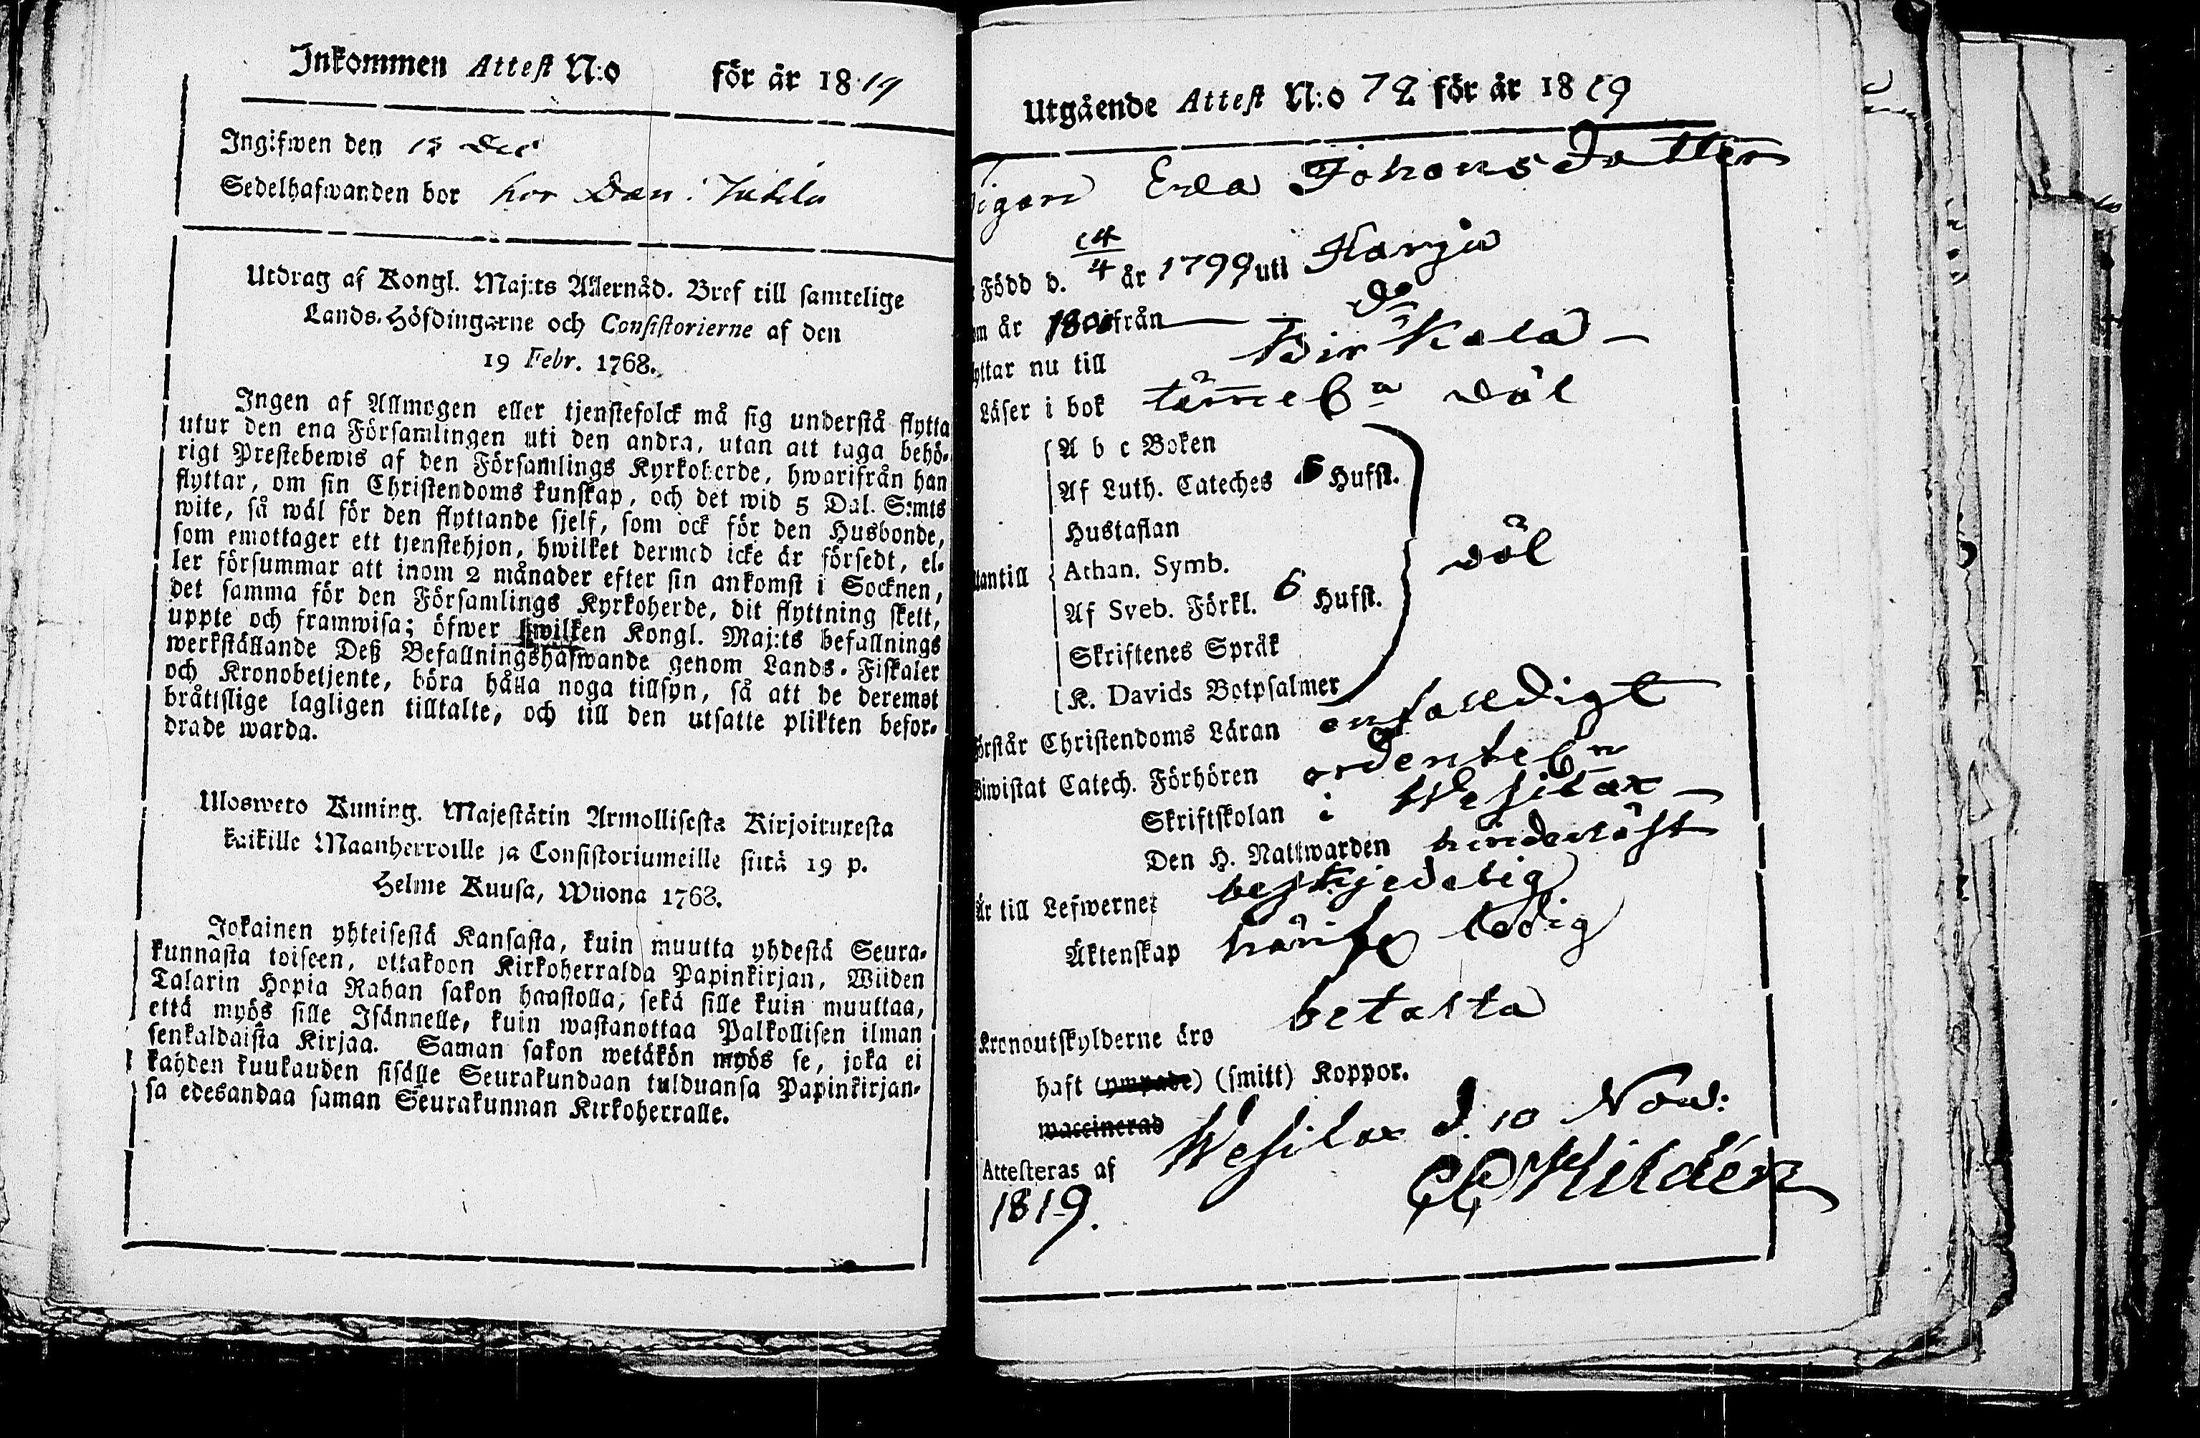 Inkommen Attest N:o för år 1819
Ingifwen den 12 Dec
Sedelhafwanden bor hos Dan:
Utdrag af Kongl. Maj:ts Allernåd. Bref till samtelige
Lands-Höfdingarne och Consistorierne af den
19 Febr. 1768.
Ingen af Allmogen eller tjenstefolck må sig understå flytta
utur den ena Församlingen uti den andra, utan att taga behö-
rigt Prestebewis af den Församlings Kyrkoherde, hwarifrån han
flyttar, om sin Christendoms kunskap, och det wid 5 Dal. S:mts
wite, så wäl för den flyttande sjelf, som ock för den Husbonde,
som emottager ett tjenstehjon, hwilket dermed icke är försedt, el-
ler försummar att inom 2 månader efter sin ankomst i Socknen,
det samma för den Församlings Kyrkoherde, dit flyttning skett,
uppte och framwisa; öfwer hwilken Kongl. Maj:ts befallnings
werkställande Deß Befallningshafwande genom Lands-Fiskaler
och Kronobetjente, böra hålla noga tillsyn, så att de deremot
bråttslige lagligen tilltalte, och till den utsatte plikten befor-
drade warda.
Ulosweto Kuning. Majestätin Armollisesta Kirjoituxesta
kaikille Maanherroille ja Consistoriumeille siitä 19 p.
Helme Kuusa, Wuona 1768.
Jokainen yhteisestä Kansasta, kuin muutta yhdestä Seura-
kunnasta toiseen, ottakoon Kirkoherralda Papinkirjan, Wiiden
Talarin Hopia Rahan sakon haastolla, sekä sille kuin muuttaa,
että myös sille Isännelle, kuin wastanottaa Palkollisen ilman
senkaldaista Kirjaa. Saman sakon wetäkön myös se, joka ei
kahden kuukauden sisälle Seurakundaan tulduansa Papinkirjan-
sa edesandaa saman Seurakunnan Kirkoherralle.
Utgående Attest N:o 72 för år 1819
Pigan Eva Johansdotter
Född d. 14/4 år 1799 uti Karju
om år ifrån Do
yttar nu till Birkala
Läser i bok väl
A b c Boken
Af Luth. Cateches 5 Hufst.
Hustaflan
Athan. Symb.
utantill väl
Af Sveb. Förkl. 6 Hufst.
Skriftenes Språk
K. Davids Botpsalmer
Förstår Christendoms Läran enfalldigt
Biwistat Catech. Förhören
Skriftskolan i Wesilax
Den H. Nattwarden hinderlöst
Är till Lefwernet beskjedelig
Äktenskap ledig
Kronoutskylderne äro betalta
haft (ympade) (smitt) Koppor.
waccinerad
Attesteras af Wesilax d. 10 Nov:
1819. Kildén